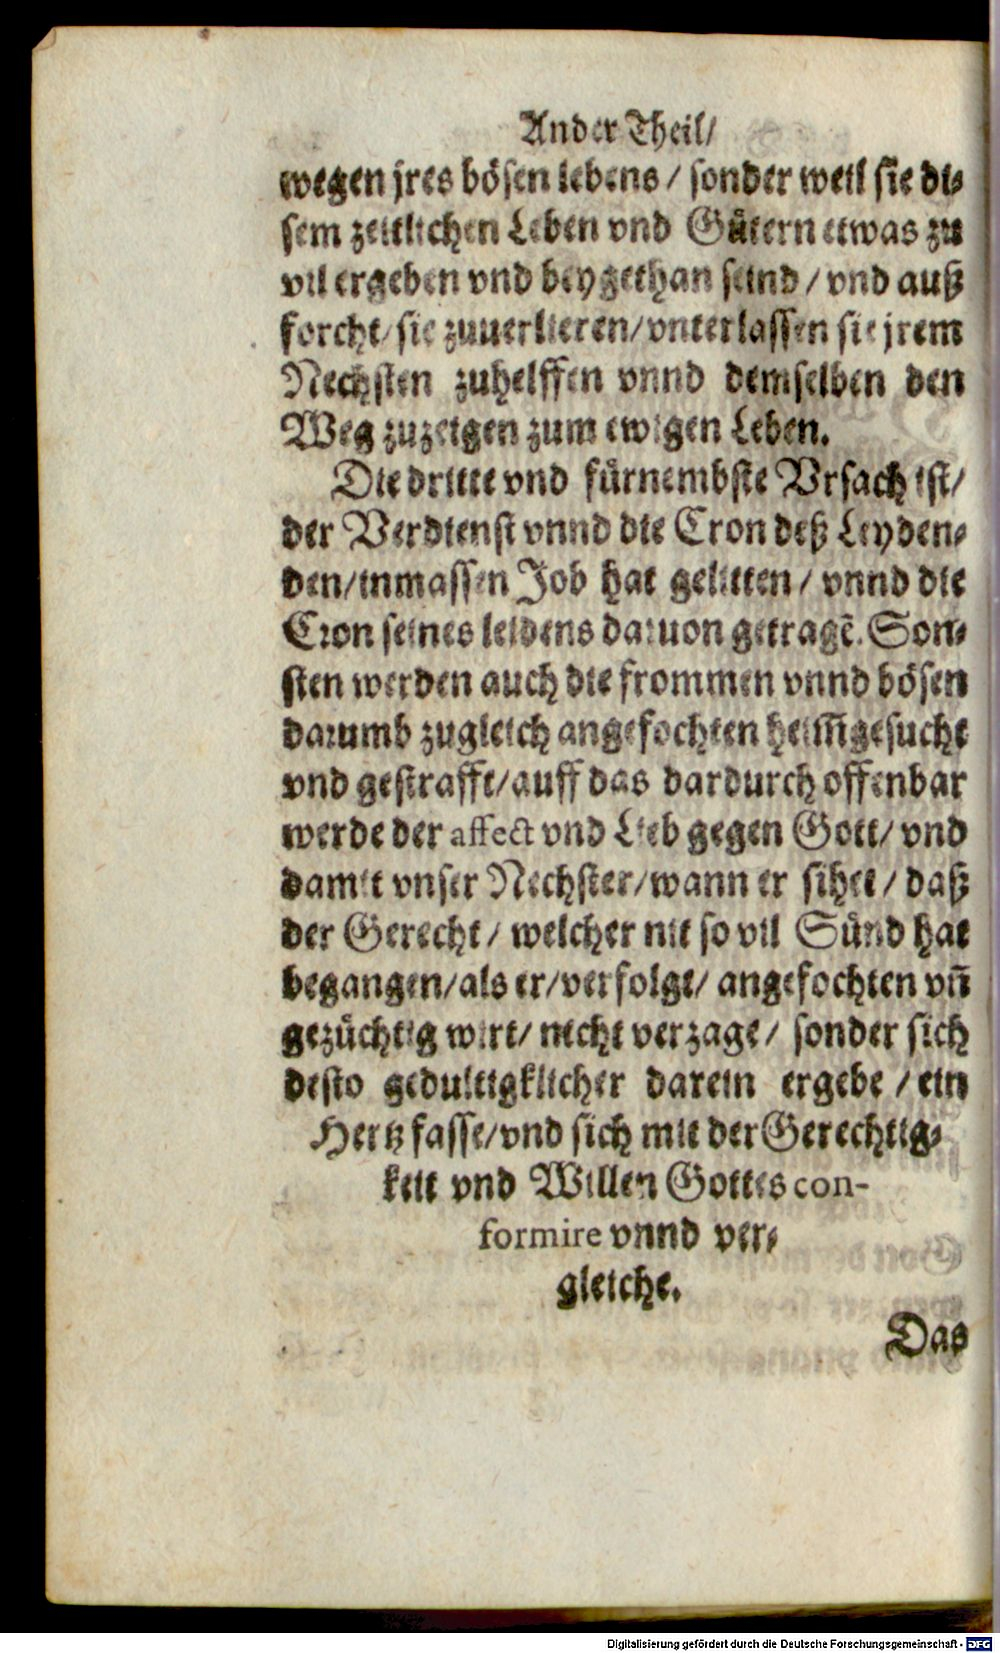 Ander Theil/
wegen jres bösen lebens / sonder weil sie di-
sem zeitlichen Leben vnd Gütern etwas zu
vil ergeben vnd beygethan seind / vnd auß
forcht/ sie zuuerlieren/ vnterlassen sie jrem
Nechsten zuhelffen vnnd demselben den
Weg zuzeigen zum ewigen Leben.
Die dritte vnd fürnembste Vrsach ist/
der Verdienst vnnd die Cron deß Leyden-
den/ inmassen Job hat gelitten / vnnd die
Cron seines leidens daruon getragē. Son-
sten werden auch die frommen vnnd bösen
darumb zugleich angefochten heim̄gesucht
vnd gestrafft/ auff das dardurch offenbar
werde der affect vnd Lieb gegen Gott/ vnd
damit vnser Nechster/ wann er sihet / daß
der Gerecht / welcher nit so vil Sünd hat
begangen/ als er/ verfolgt/ angefochten vn̄
gezüchtig wirt/ nicht verzage / sonder sich
desto gedultigklicher darein ergebe / ein
Hertz fasse/ vnd sich mit der Gerechtig-
keit vnd Willen Gottes con-
formire vnnd ver-
gleiche.
Das
Digitalisierung gefördert durch die Deutsche Forschungsgemeinschaft - DFG